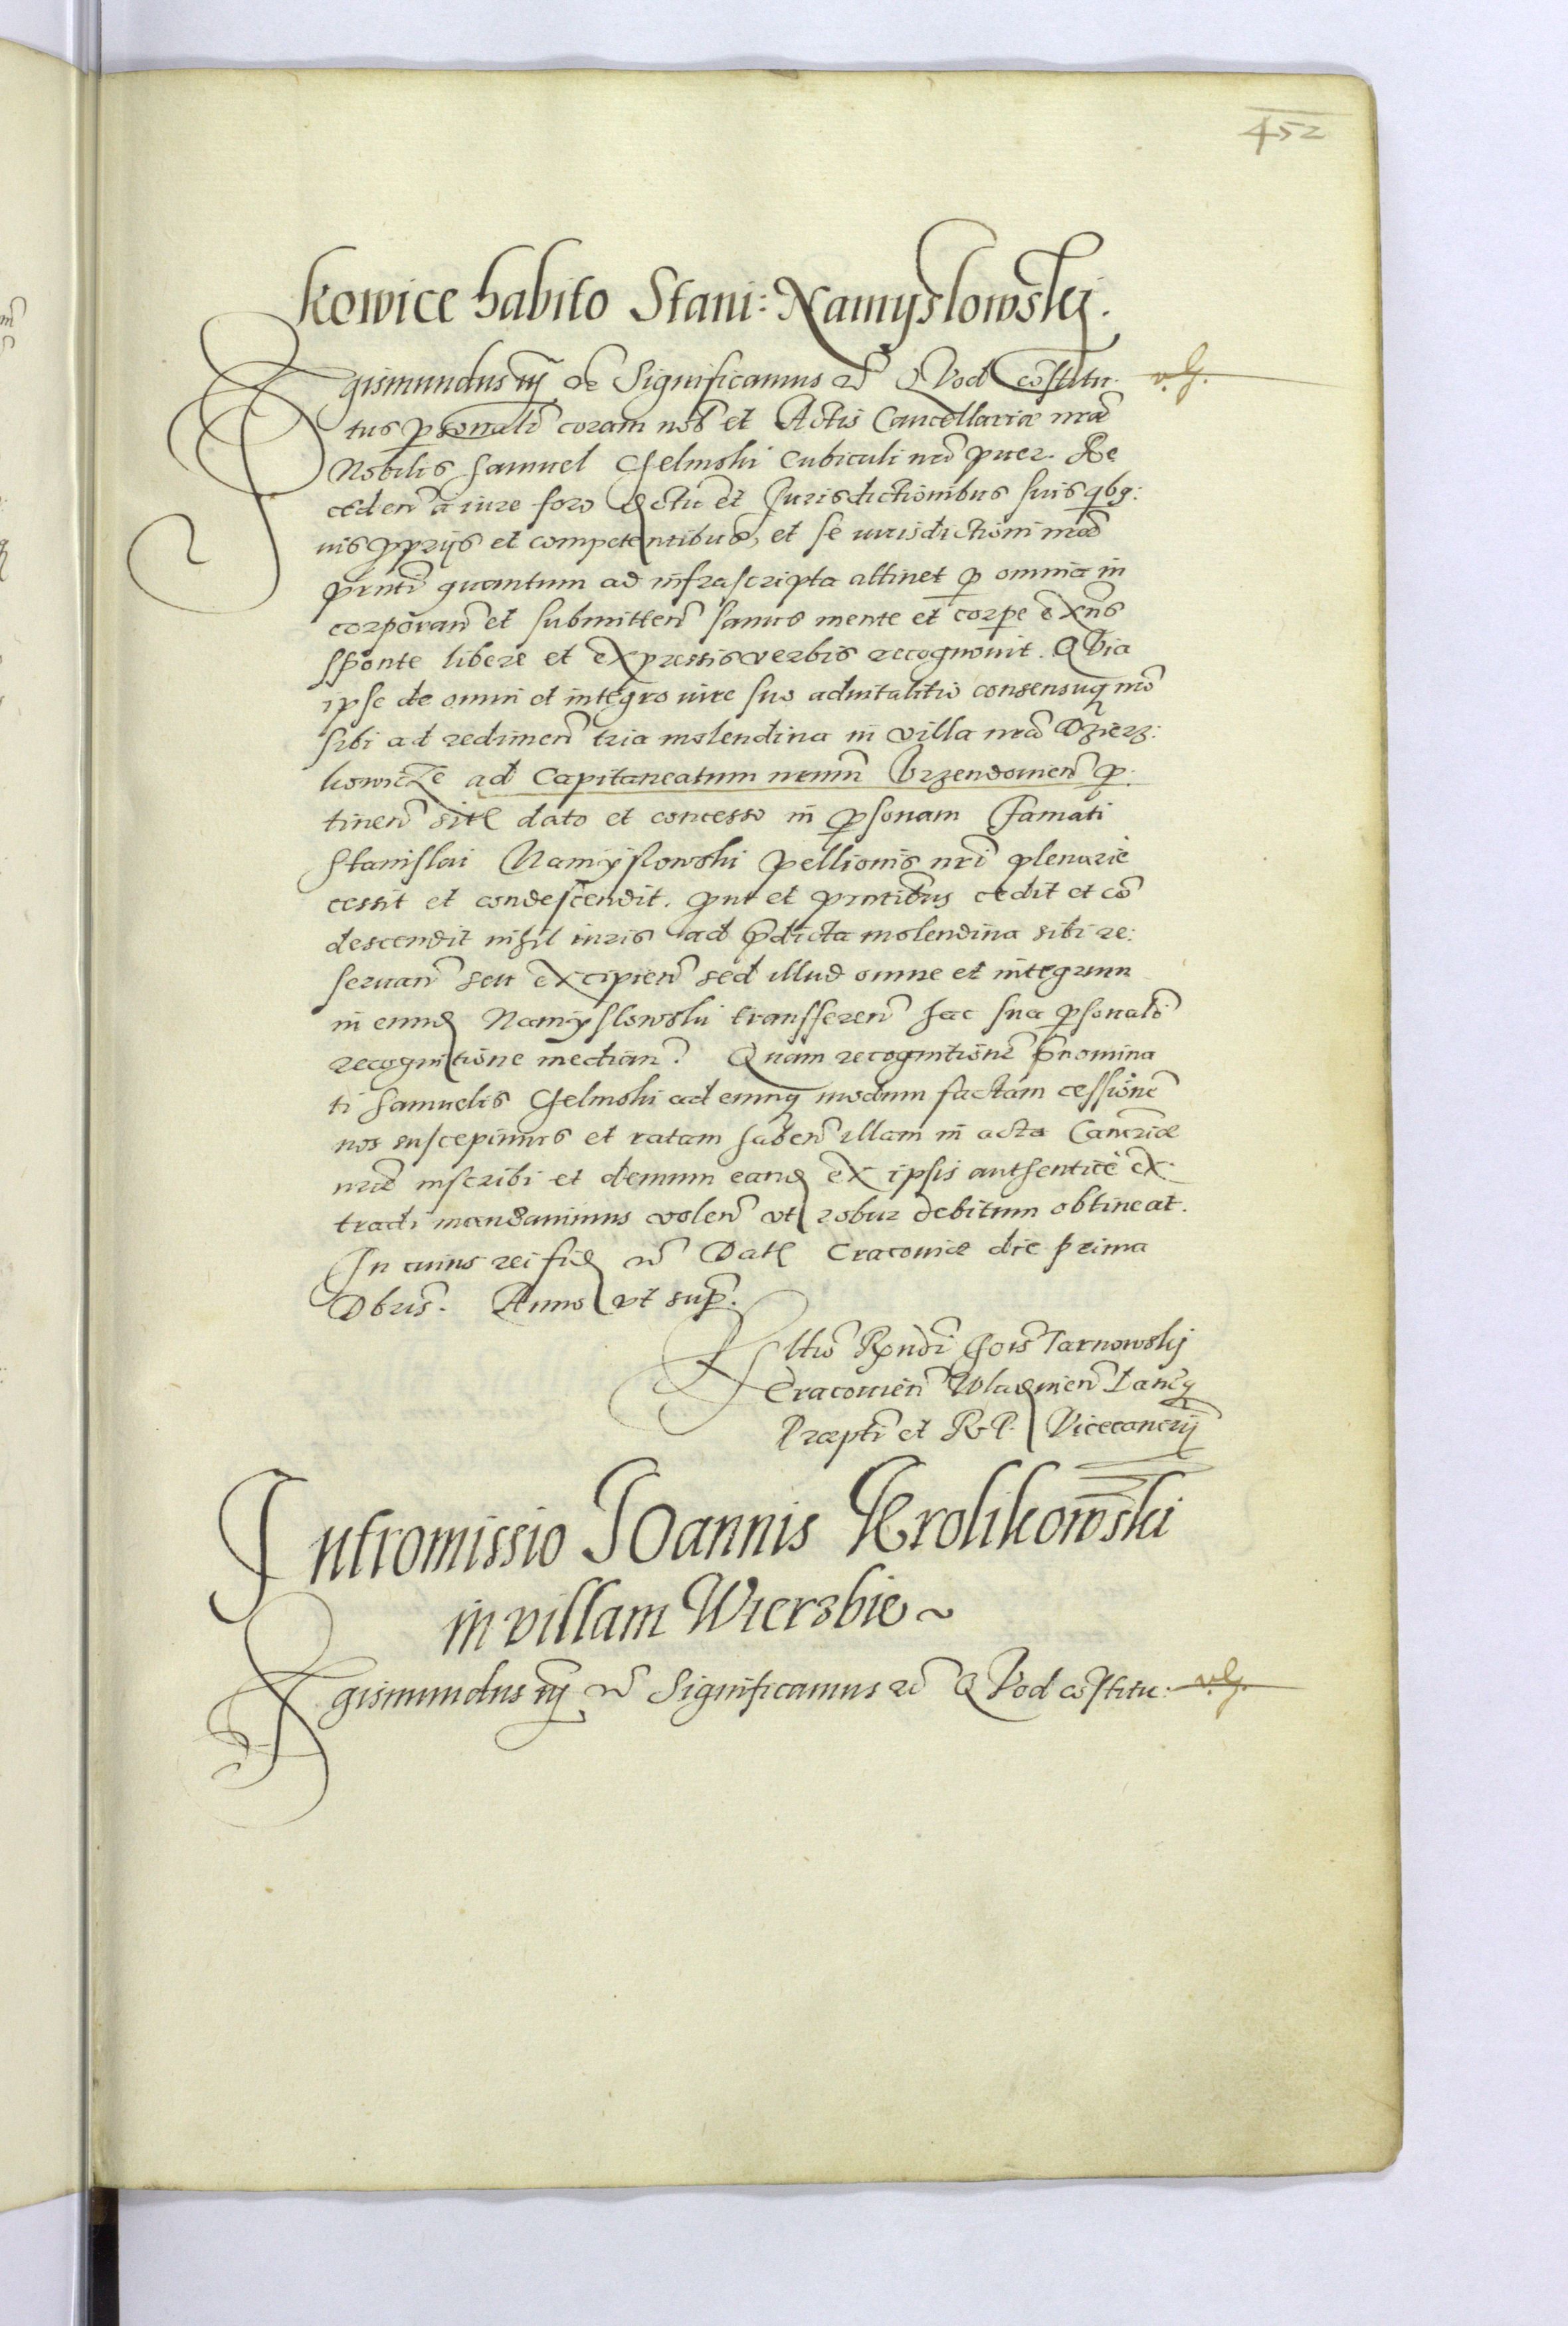 452
kowice habito Stani: Namyslowskj.
Sigismundus iij etc Significamus etc QVod cōstitu: v. g.
tus personalr̃ coram nob̃ et Actis Cancellariæ nrãe
Nobilis Samuel Chelmski Cubiculi nrĩ puer. Re
ceden̄ a iure foro et Jurisdictionibus suis qbg:
uis pprijs et competentibus, et se iurisdictioni nrãe
pñti quantum ad infrascripta attinet p omnia in
corporan̄ et submitten̄ sanus mente et corpe exñs
sponte libere et expressis verbis recognouit. QVia
ipse de omni et integro iure suo aduitalitio consensuq nrõ
sibi ad redimen̄ tria molendina in villa nrã Dzierz:
kowicze ad Capitaneatum nrum̄ Vrzendouien̄ p:
tinen̄ sitꝭ dato et concesso in psonam Famati
Stanislai Namyslowski pellionis nrĩ plenarie
cessit et condescendit. put et pñtibus cedit et cō
descendit nihil iuris ad p̄dicta molendina sibi re:
seruan̄ seu excipien̄ sed illud omne et integrum
in eund Namyslowski transferen̄ hac sua psonalĩ
recognitione median̄. Quam recognitionē p̄nomina
ti Samuelis Chelmski ad eumq modum factam cessionē
nos suscepimus et ratam haben̄ illam in acta Cancriæ
nrãe inscribi et demum eand ex ipsis authenticè ex
tradi mandauimus volen̄ vt robur debitum obtineat.
In cuius rei fid etc Datꝭ Cracouiæ die prima
Obris̄. Anno vt sup̄.
Rltio Rṇdi Jois Tarnowskj
Cracouien̄ Wladinen̄ Lancq
Præpti et R. P. Vicecancrij
Intromissio JOannis Krolikowski
in villam Wierzbie ~
Sigismundus iij etc Significamus etc QVod cōstitu: v. g.